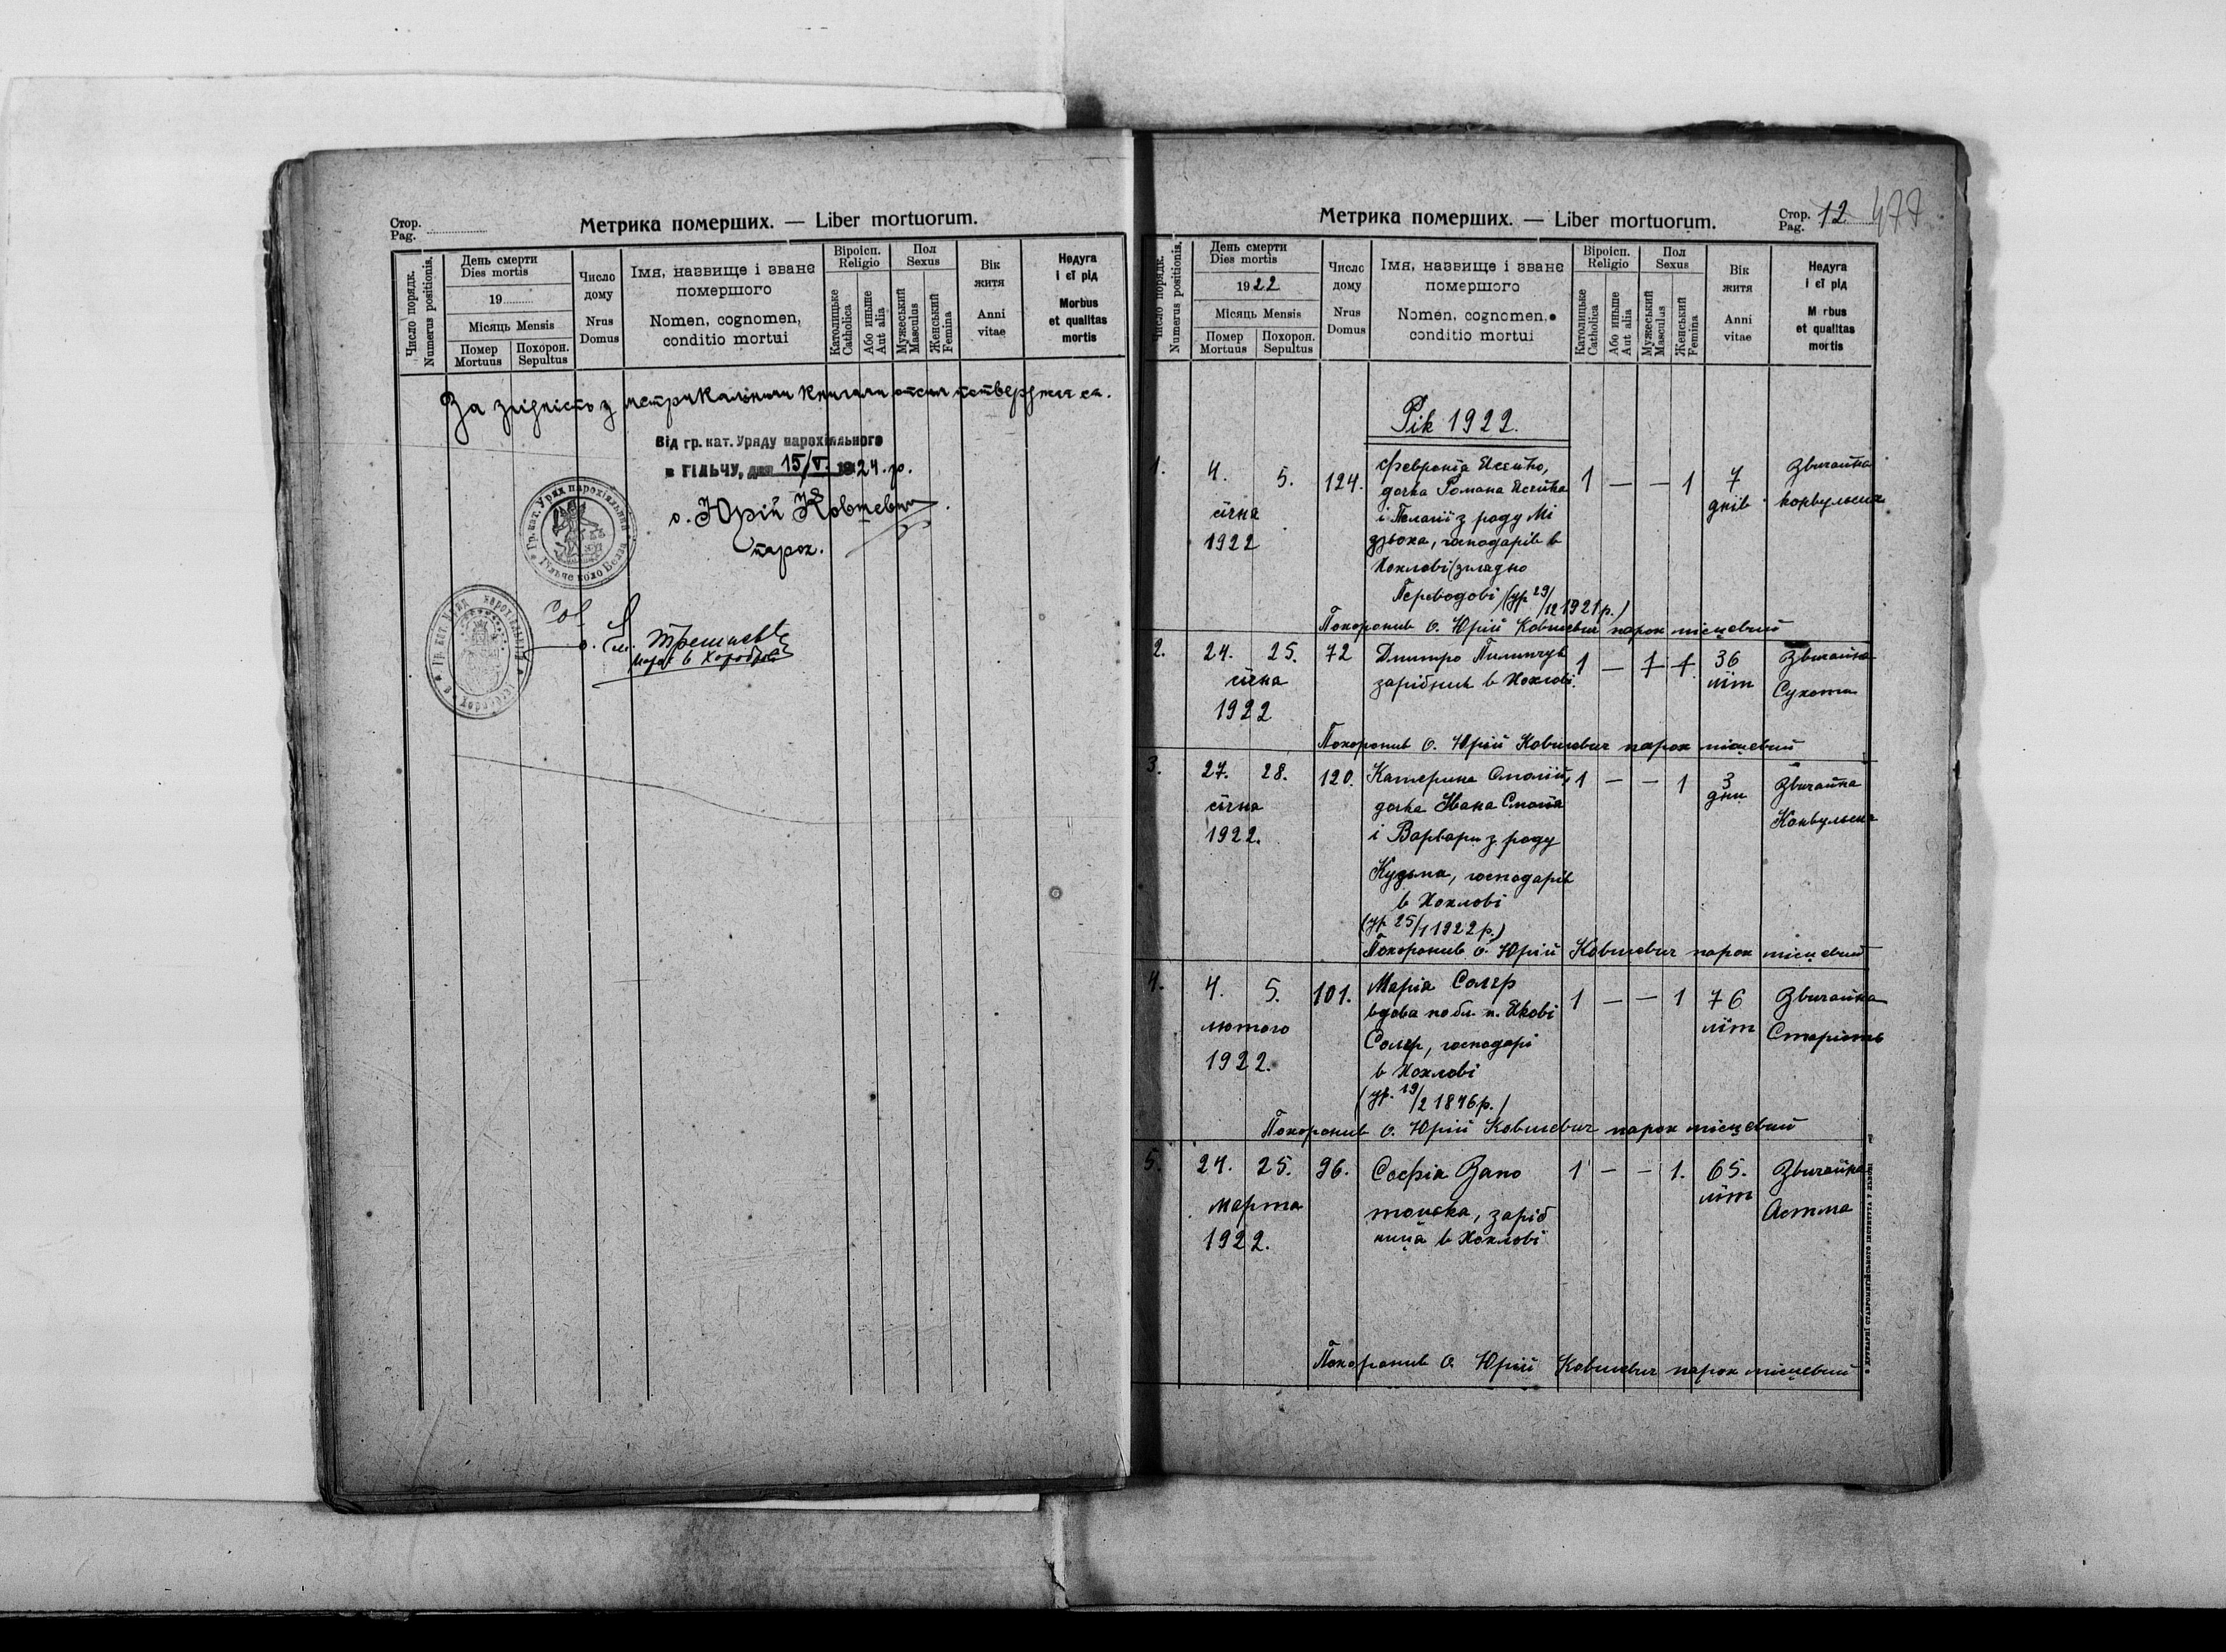 Стор.
Pag.
Метрика померших. — Liber mortuorum.
Число порядк.
Numerus positionis.
День смерти
Dies mortis
19
Місяць Mensis
Помер
Mortuus
Похорон.
Sepultus
Число
дому
Nrus
Domus
Імя, назвище і зване
помершого
Nomen, cognomen,
conditio mortui
Віроісп.
Religio
Католицьке
Catholica
Або иньше
Aut alia
Пол
Sexus
Мужеський
Masculus
Женський
Femina
Вік
житя
Anni
vitae
Недуга
і єї рід
Morbus
et qualitas
mortis
За згідність з метрикальними книгами отсим потверджає ся.
Від гр. кат. Уряду парохіяльного
в ГІЛЬЧУ, дня 15/V. 1924. р.
о. Юрій Ковшевич
парох.
Стор.
Pag. 12
477
Метрика померших. — Liber mortuorum.
Число порядк.
Numerus positionis.
День смерти
Dies mortis
1922
Місяць Mensis
Помер
Mortuus
Похорон.
Sepultus
Число
дому
Nrus
Domus
Імя, назвище і зване
помершого
Nomen, cognomen,
conditio mortui
Віроісп.
Religio
Католицьке
Catholica
Або иньше
Aut alia
Пол
Sexus
Мужеський
Masculus
Женський
Femina
Вік
житя
Anni
vitae
Недуга
і єї рід
M rbus
et qualitas
mortis
Рік 1922.
1. 4. 5. 124. Февронія 1 — — 1 7 Звичайна
січня дочка Романа днів конвульсия
1922 і Пелагії з роду Мі
дзьоха, господарів в
Хохлові (згладно
Переводові (ур 29/12 1921 р.)
Похоронив о. Юрій Ковшевич парох місцевий
2. 24. 25. 72 Дмитро Пилипчук 1 — 1 1 36 Звичайна
січня зарібник в Хохлові. літ Сухота
1922
Похоронив о. Юрій Ковшевич парох місцевий
3. 27. 28. 120. Катерина Смолій, 1 — — 1 3 Звичайна
січня дочка Івана Смолія дни Конвульсия
1922. і Варвари з роду
Кузьма, господарів
в Хохлові
(ур 25/1 1922 р.)
Похоронив о. Юрій Ковшевич парох місцевий
4. 4. 5. 101. Марія Соляр 1 — — 1 76 Звичайна
лютого вдова по бл. п. Якові літ Старість
1922. Соляр, господарі
в Хохлові
(ур. 19/2 1846 р.)
Похоронив о. Юрій Ковшевич парох місцевий
5. 24. 25. 96. Софія Запо 1 — — 1. 65. Звичайна
марта заріб літ Астма
1922. ниця в Хохлові
Похоронив о. Юрій Ковшевич парох місцевий